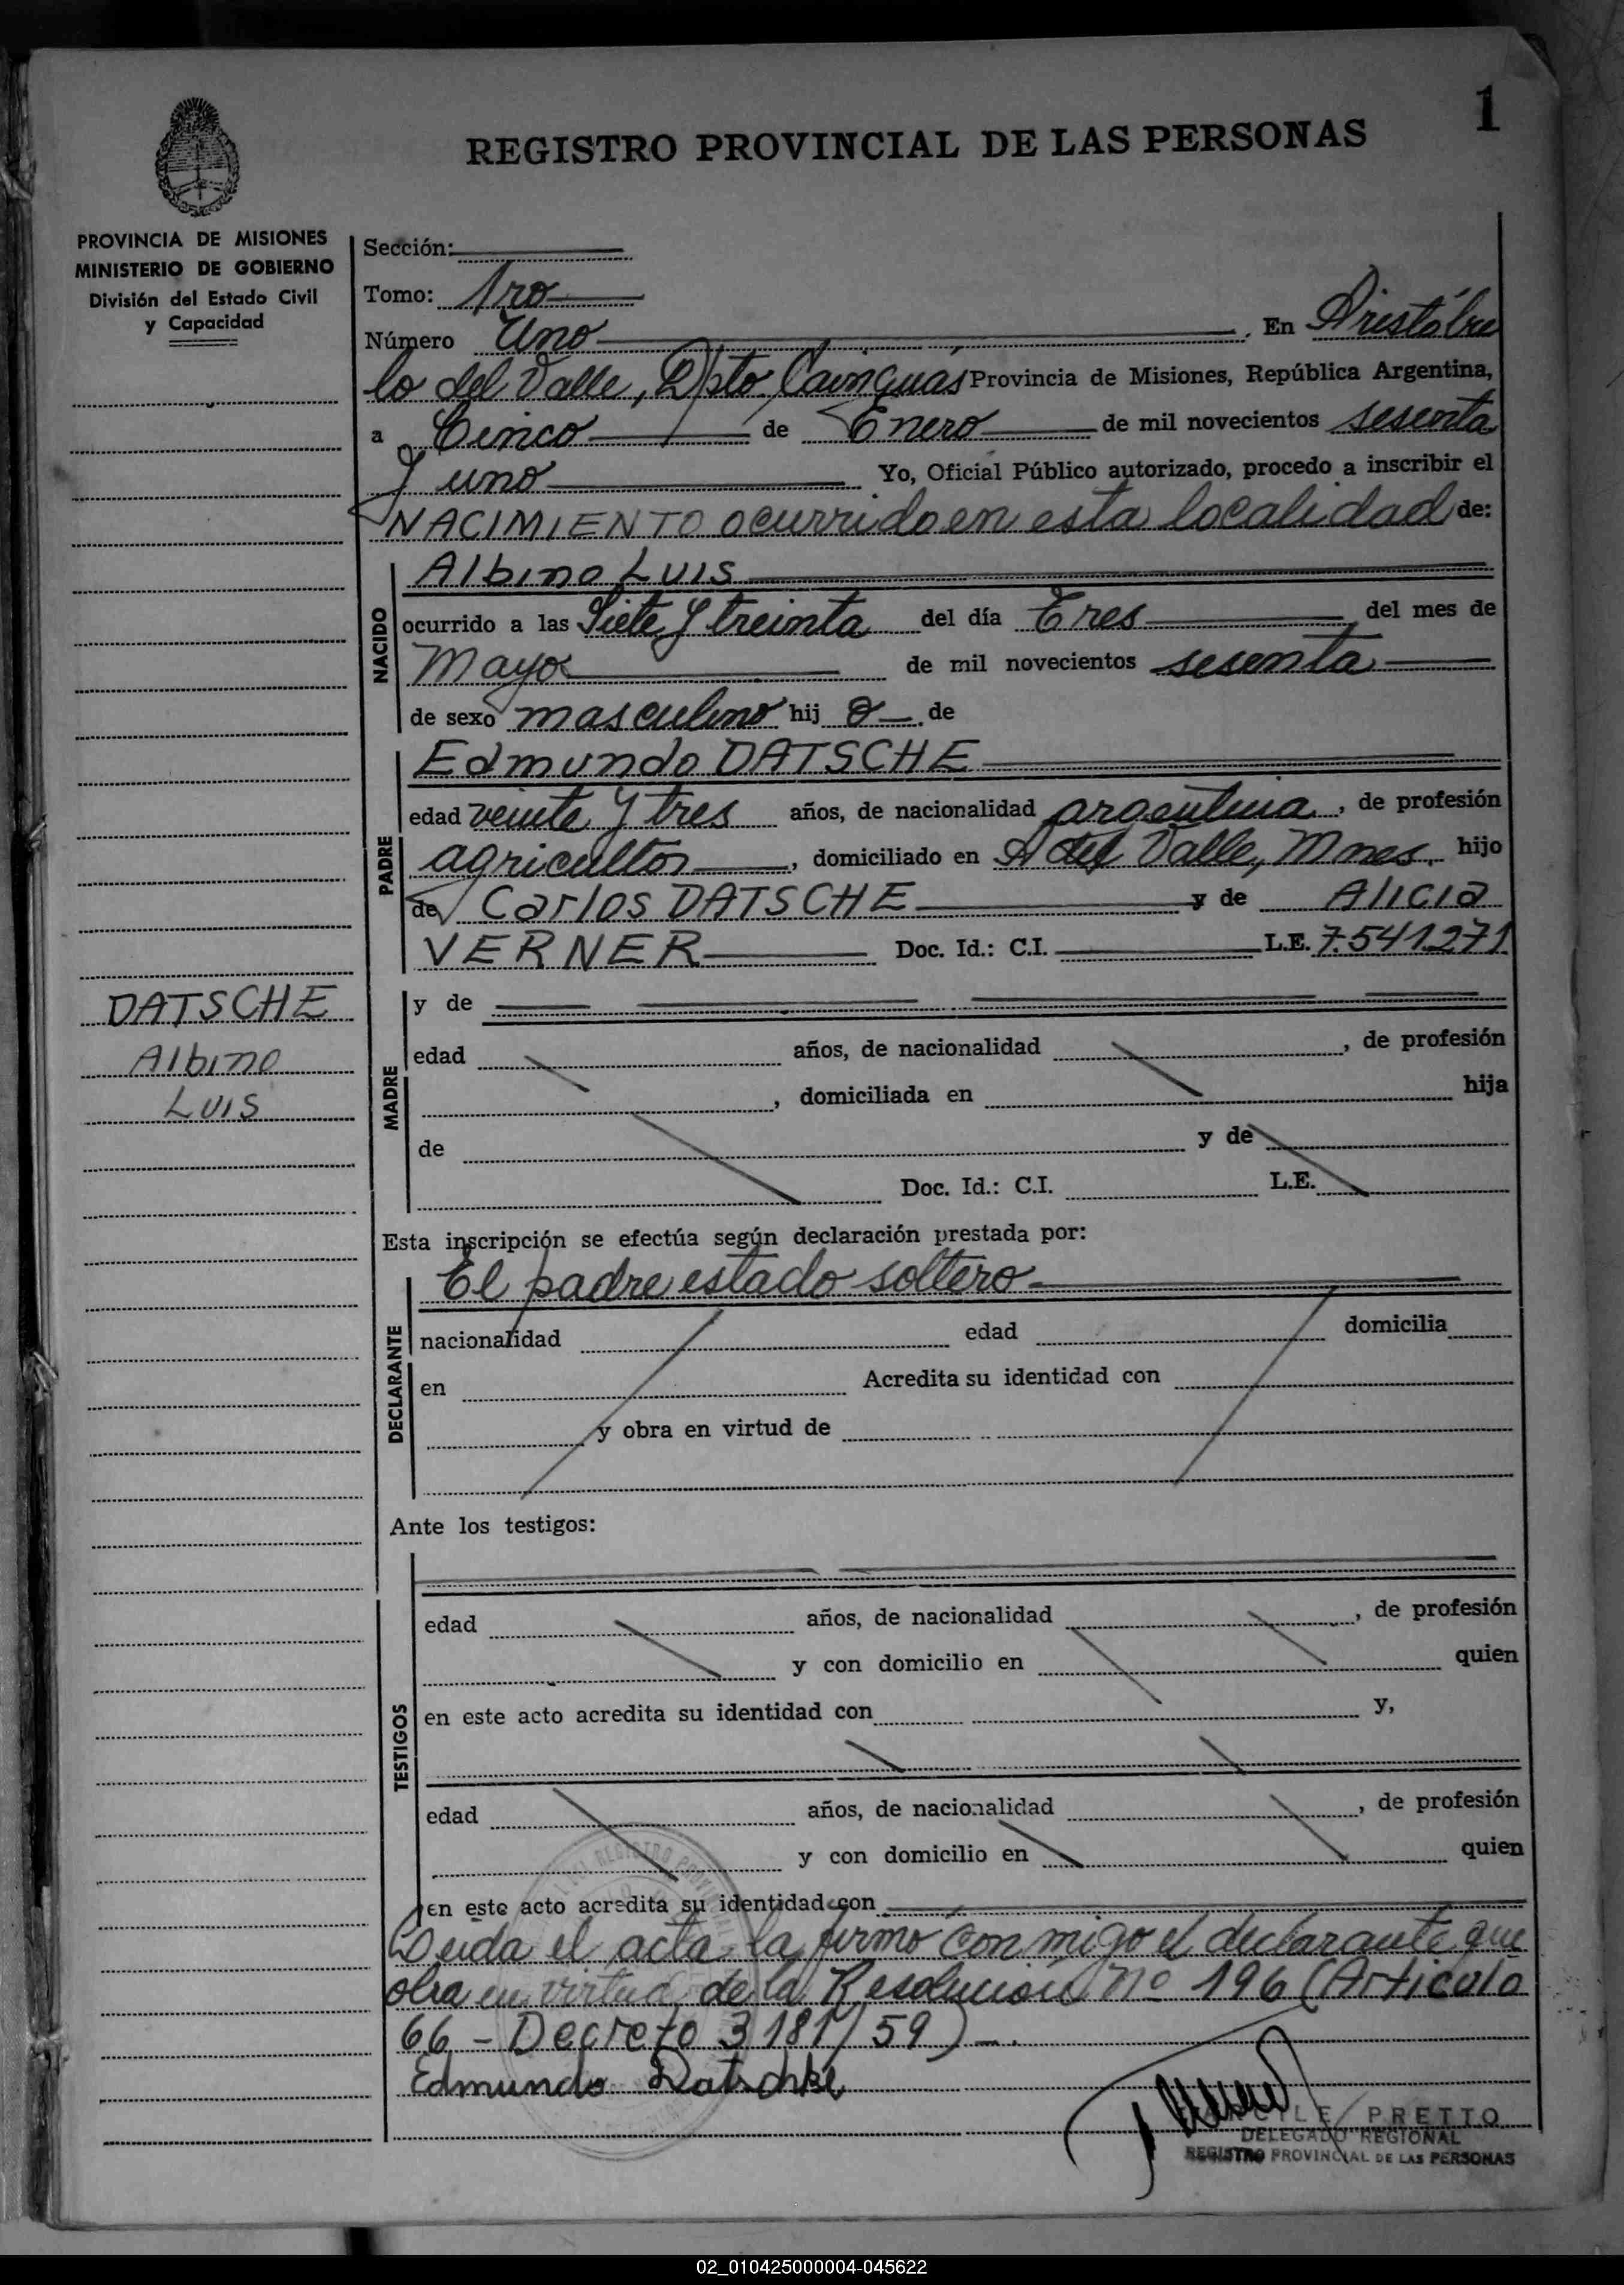 1
REGISTRO PROVINCIAL DE LAS PERSONAS
PROVINCIA DE MISIONES
MINISTERIO DE GOBIERNO
División del Estado Civil
y Capacidad
Sección:
Tomo: 1ro
Número Uno . En Aristóbu
lo del Valle, Dpto. Cainguás Provincia de Misiones, República Argentina,
a Cinco de Enero de mil novecientos sesenta
y uno Yo, Oficial Público autorizado, procedo a inscribir el
NACIMIENTO ocurrido en esta localidad de:
NACIDO
Albino Luis
ocurrido a las Siete y treinta del día Tres del mes de
Mayo de mil novecientos sesenta
de sexo masculino hij o de
PADRE
Edmundo DATSCHE
edad veinte y tres años, de nacionalidad argentina, de profesión
agricultor, domiciliado en A del Valle, Mnes. hijo
de Carlos DATSCHE y de Alicia
VERNER Doc. Id.: C.I. L.E. 7.541.271
DATSCHE
Albino
Luis
MADRE
y de
edad años, de nacionalidad , de profesión
, domiciliada en hija
de y de
Doc. Id.: C.I. L.E.
Esta inscripción se efectúa según declaración prestada por:
DECLARANTE
El padre estado soltero
nacionalidad edad domicilia
en Acredita su identidad con
y obra en virtud de
Ante los testigos:
TESTIGOS
edad años, de nacionalidad , de profesión
y con domicilio en quien
en este acto acredita su identidad con y,
edad años, de nacionalidad , de profesión
y con domicilio en quien
en este acto acredita su identidad con
Leida el acta la firmó conmigo el declarante que
obra en virtud de la Resolución Nº 196 (Articulo
66 - Decreto 3181/59)
Edmundo Datschke
PRETTO
DELEGADO REGIONAL
REGISTRO PROVINCIAL DE LAS PERSONAS
02_010425000004-045622